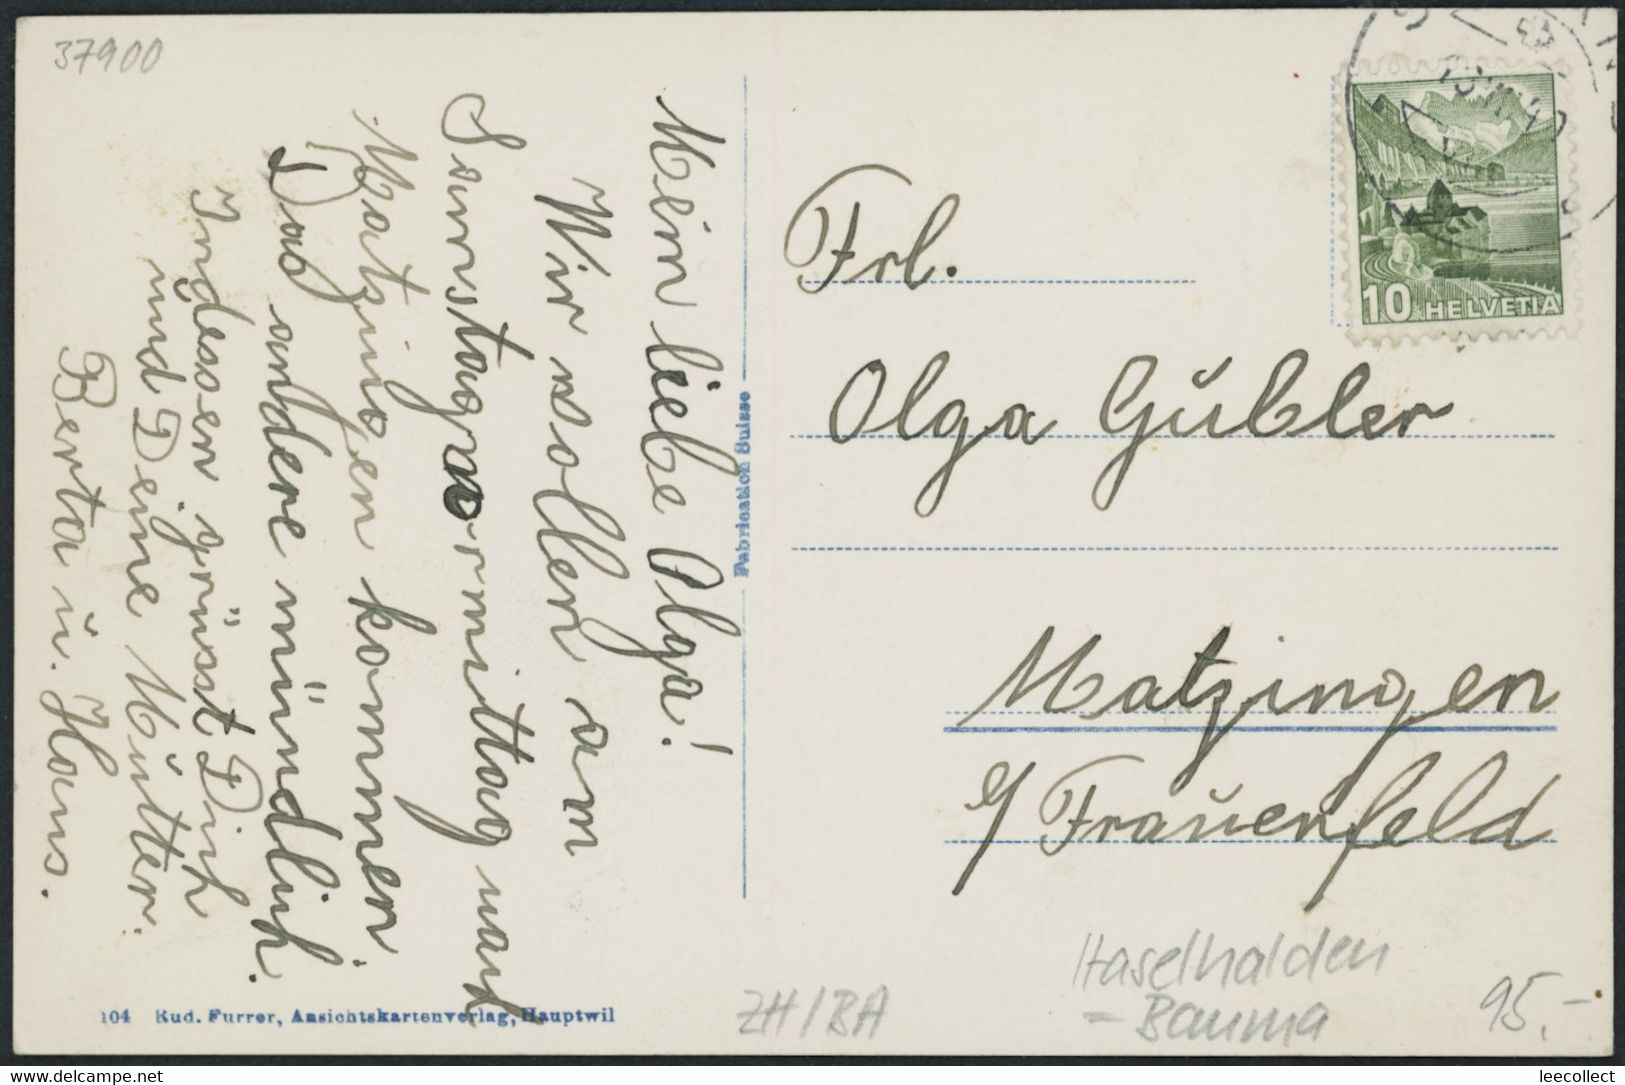 37900
Mein liebe Olga!
Wir wollen am
Samstagnarmittag nach
Matzingen kommen.
Das andere mündlich.
Indessen grüsst Dich
und Deine Mutter.
Berta u. Hans.
104 Rud. Furrer, Ansichtskartenverlag, Hauptwil
Fabrication Suisse
10 HELVETIA
Frl.
Olga Gubler
Matzingen
b/ Frauenfeld
Haselhalden
- Bauma
ZH/BA
95.-
leecollect